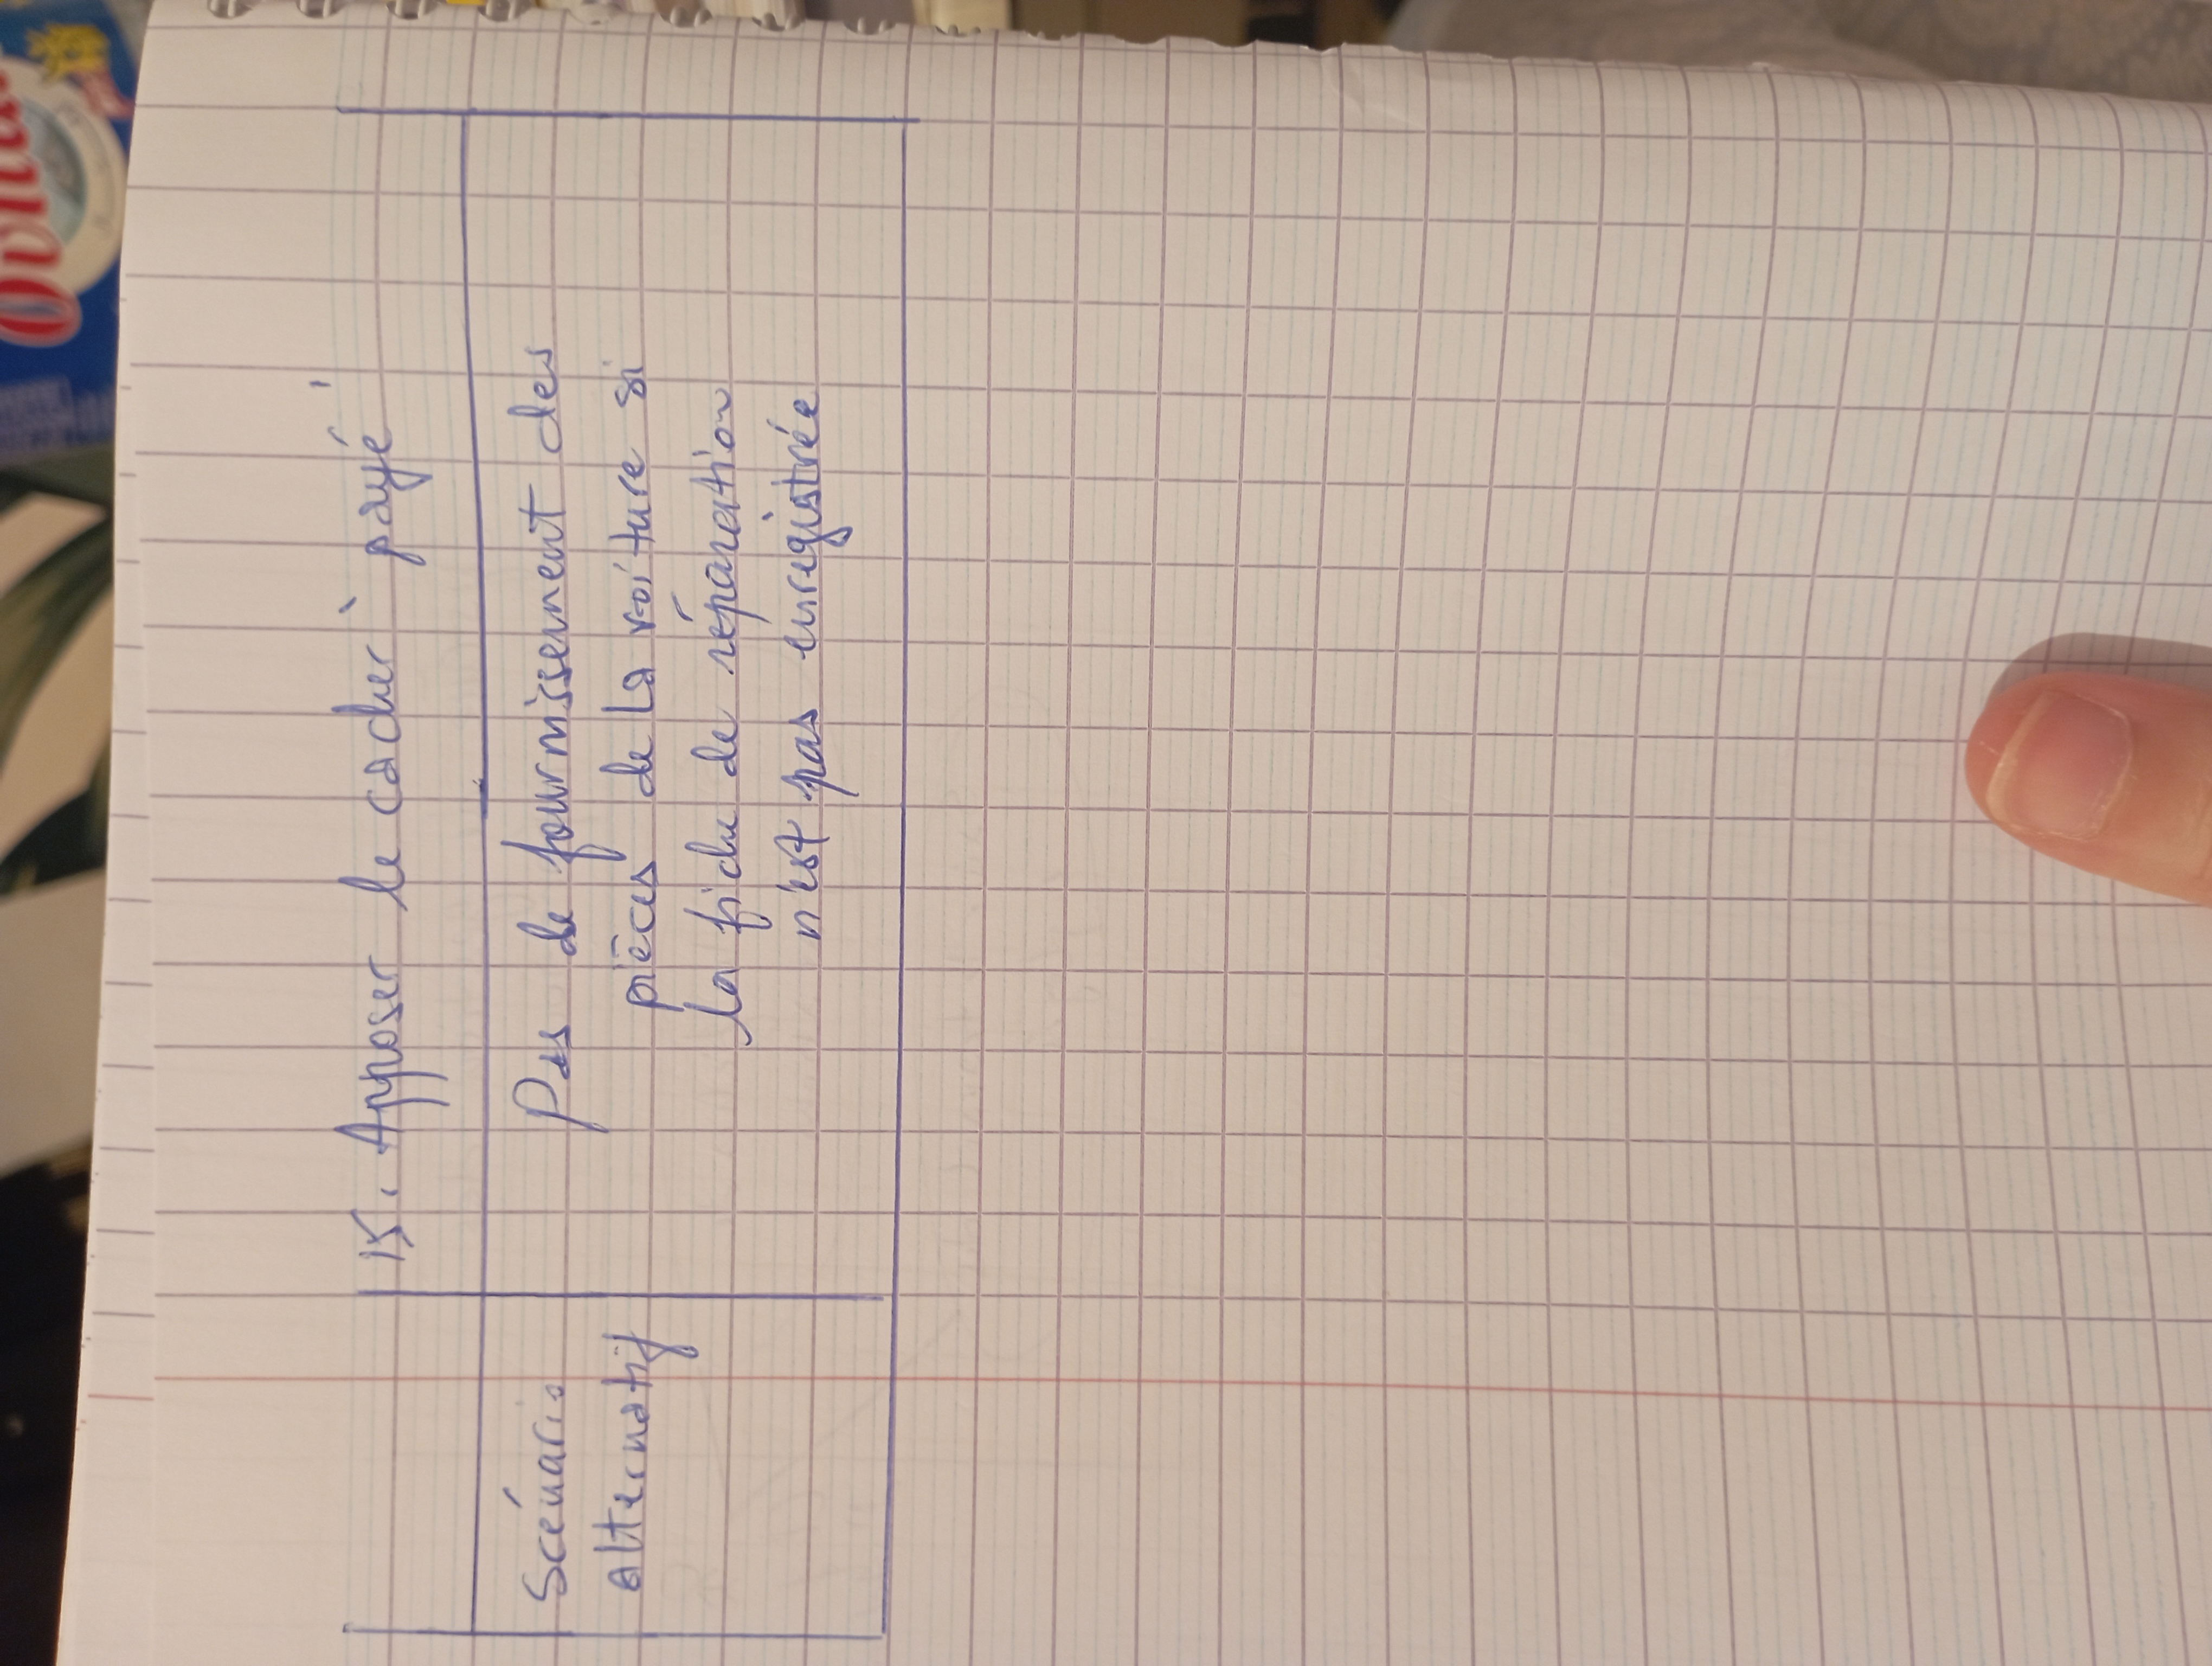 15. Apposer le cacher 'payé'
Scénario
alternatif
Pas de fournissement des
pièces de la voiture si
la fiche de réparation
n'est pas enregistrée